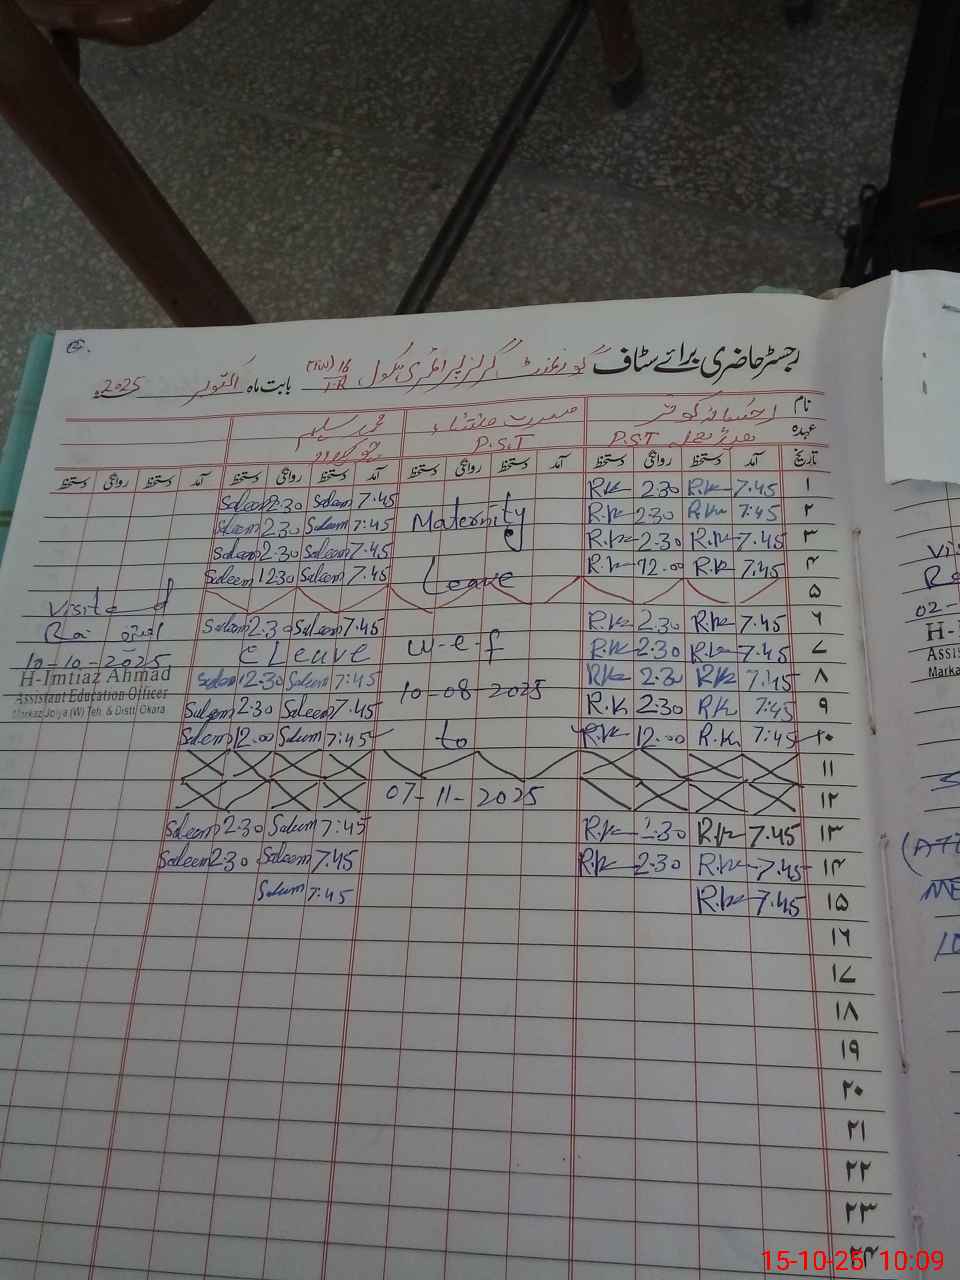 رجسٹر حاضری برائے سٹاف گورنمنٹ گرلز پرائمری سکول 16/1-R بابت ماہ اکتوبر 2025ء
نام
عہدہ P.S.T P.S.T
تاریخ آمد دستخط روانگی دستخط آمد دستخط روانگی دستخط آمد دستخط روانگی دستخط آمد دستخط روانگی دستخط
۱ 7.45 R.k 2.30 R.k 7.45 Saleem 2.30 Saleem
۲ 7:45 R.k 2.30 R.k Maternity 7:45 Saleem 2.30 Saleem
۳ 7.45 R.k 2.30 R.k 7.45 Saleem 2.30 Saleem
۴ 7.45 R.k 12.00 R.k Leave 7.45 Saleem 12.30 Saleem
۵
۶ 7.45 R.k 2.30 R.k 7.45 Saleem 2.30 Saleem
۷ 7.45 R.k 2.30 R.k w-e-f C Leave
۸ 7:45 R.k 2.30 R.k 7:45 Saleem 2.30 Saleem
۹ 7:45 R.k 2.30 R.k 10-08-2025 7.45 Saleem 2.30 Saleem
۱۰ 7:45 R.k 12.00 R.k to 7:45 Saleem 12.00 Saleem
۱۱
۱۲ 07-11-2025
۱۳ 7.45 R.k 2.30 R.k 7:45 Saleem 2.30 Saleem
۱۴ 7.45 R.k 2.30 R.k 7.45 Saleem 2.30 Saleem
۱۵ 7.45 R.k 7:45 Saleem
۱۶
۱۷
۱۸
۱۹
۲۰
۲۱
۲۲
۲۳
۲۴
Visited
10-10-2025
H-Imtiaz Ahmad
Assistant Education Officer
Markaz Joiya (W) Teh. & Distt. Okara
02-
H-I
Assis
Marka
15-10-25 10:09